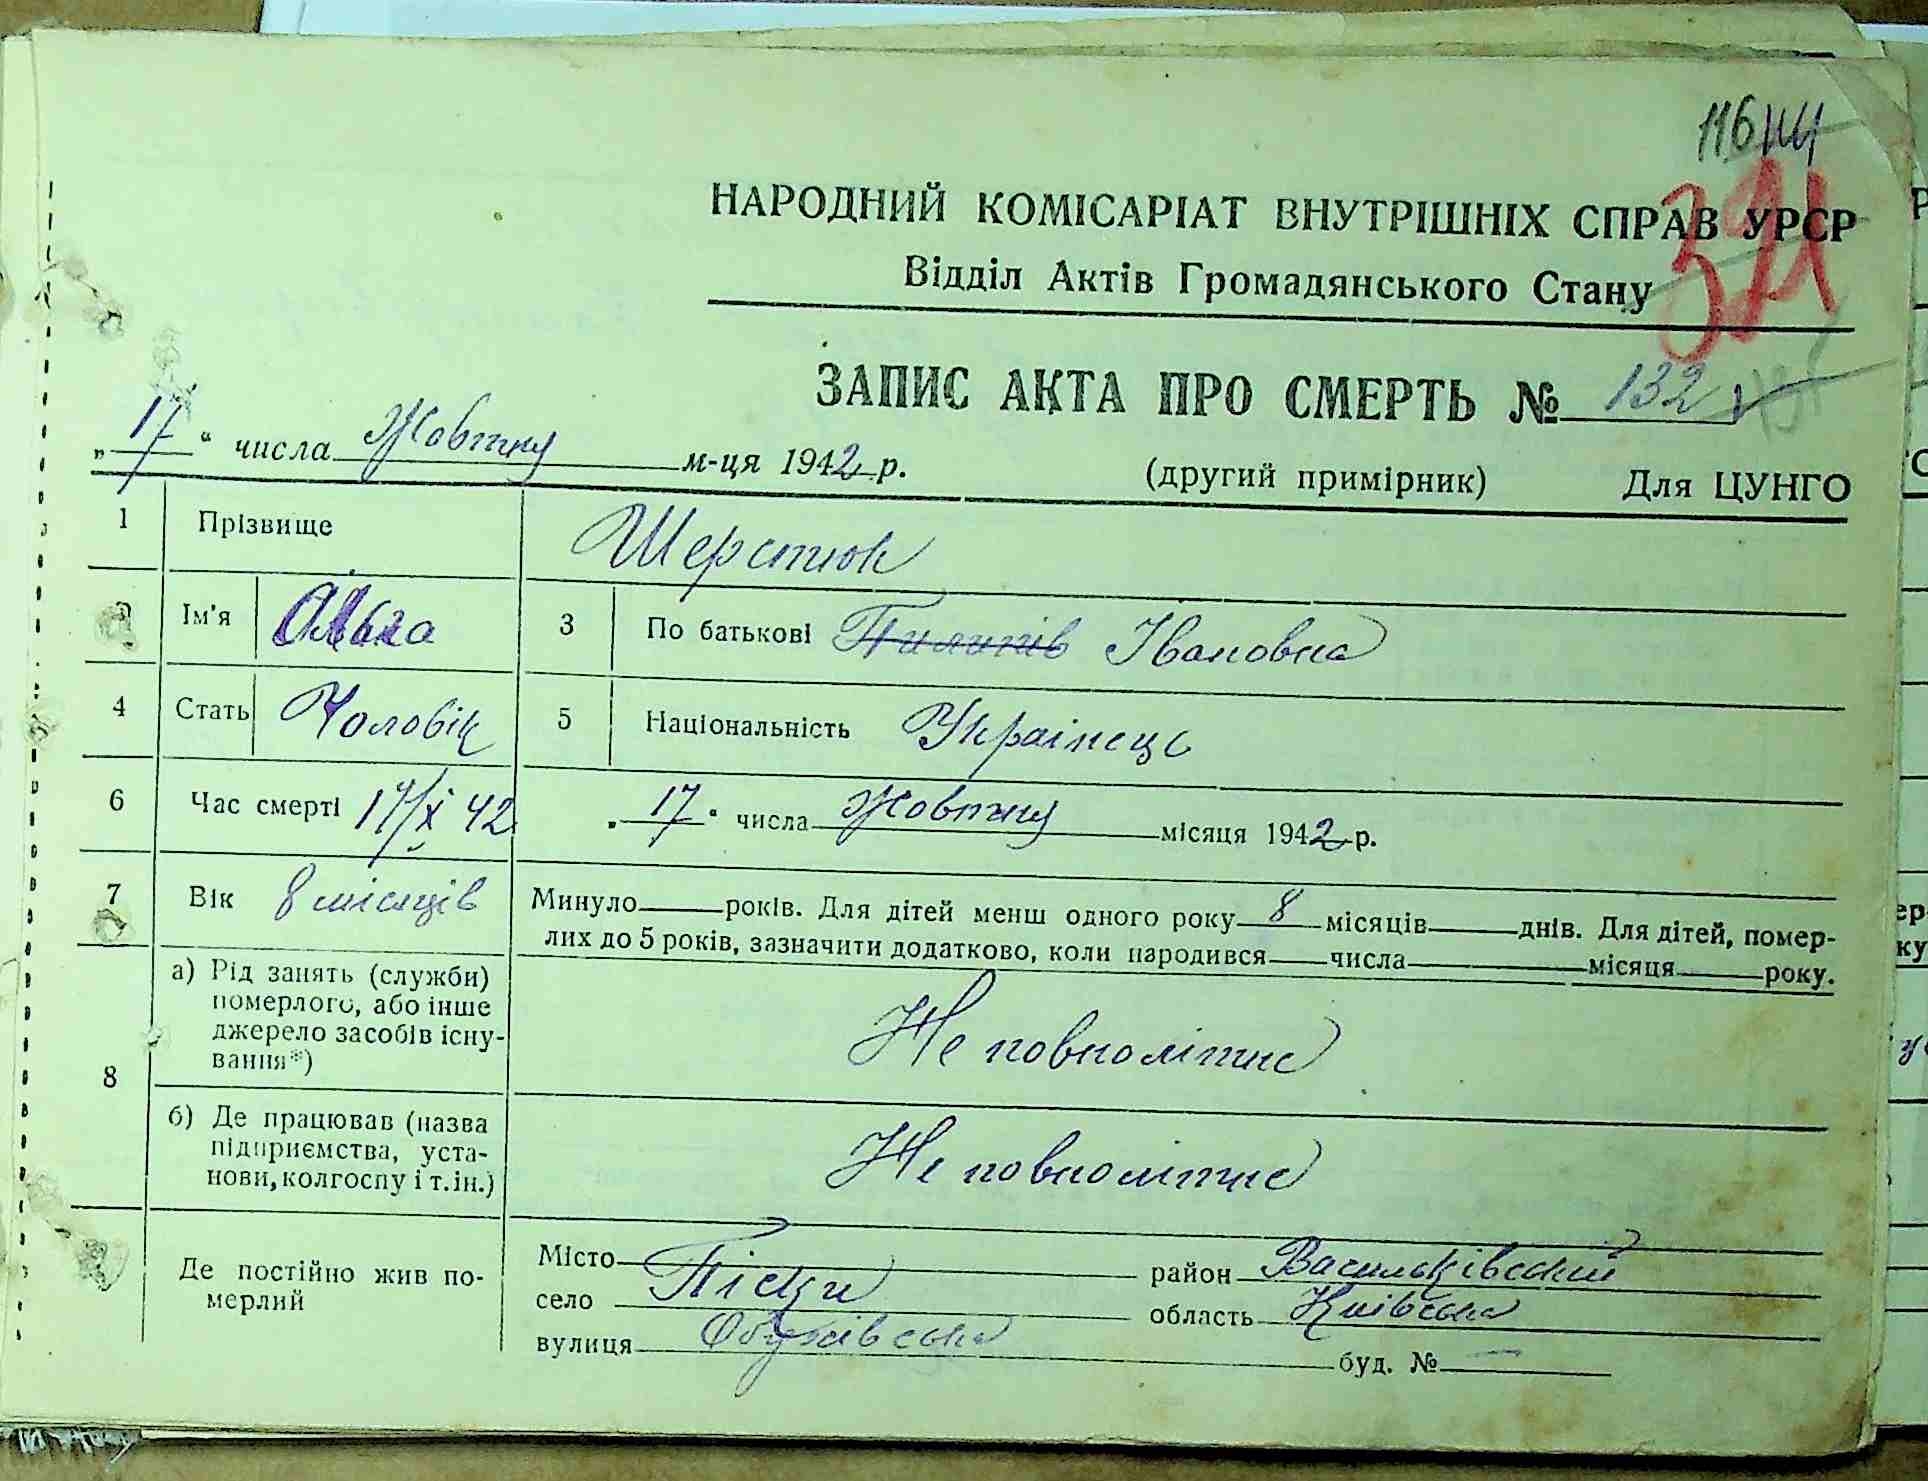 116
321
НАРОДНИЙ КОМІСАРІАТ ВНУТРІШНІХ СПРАВ УРСР
Відділ Актів Громадянського Стану
ЗАПИС АКТА ПРО СМЕРТЬ № 132
„17“ числа Жовтня м-ця 1942 р. (другий примірник) Для ЦУНГО
1 Прізвище Шерстюк
2 Ім'я Ольга 3 По батькові Пилипів Івановна
4 Стать Чоловік 5 Національність Українець
6 Час смерті 17/X 42 „17“ числа Жовтня місяця 1942 р.
7 Вік 8 місяців Минуло року. Для дітей менш одного року 8 місяців днів. Для дітей, помер-
лих до 5 років, зазначити додатково, коли народився числа місяця року.
8 а) Рід занять (служби)
померлого, або інше
джерело засобів існу-
вання*)
Не повнолітнє
б) Де працював (назва
підприємства, уста-
нови, колгоспу і т.ін.)
Не повнолітнє
Де постійно жив по-
мерлий
Місто район Васильківський
село Піски область Київська
вулиця Обухівська буд. № —